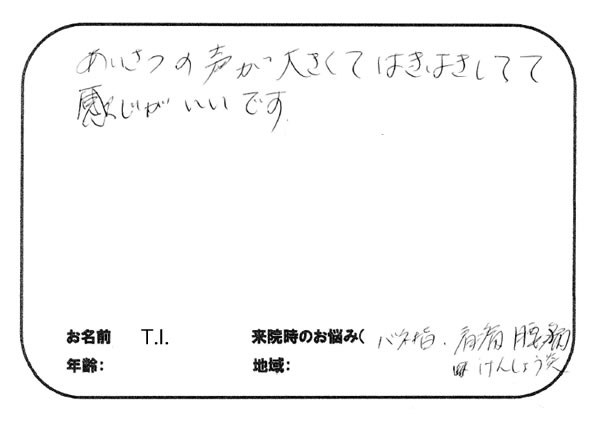 あいさつの声が大きくてはきはきしてて
感じがいいです.
お名前 T.I. 来院時のお悩み( バネ指・肩痛 腰痛
けんしょう炎
年齢: 地域: